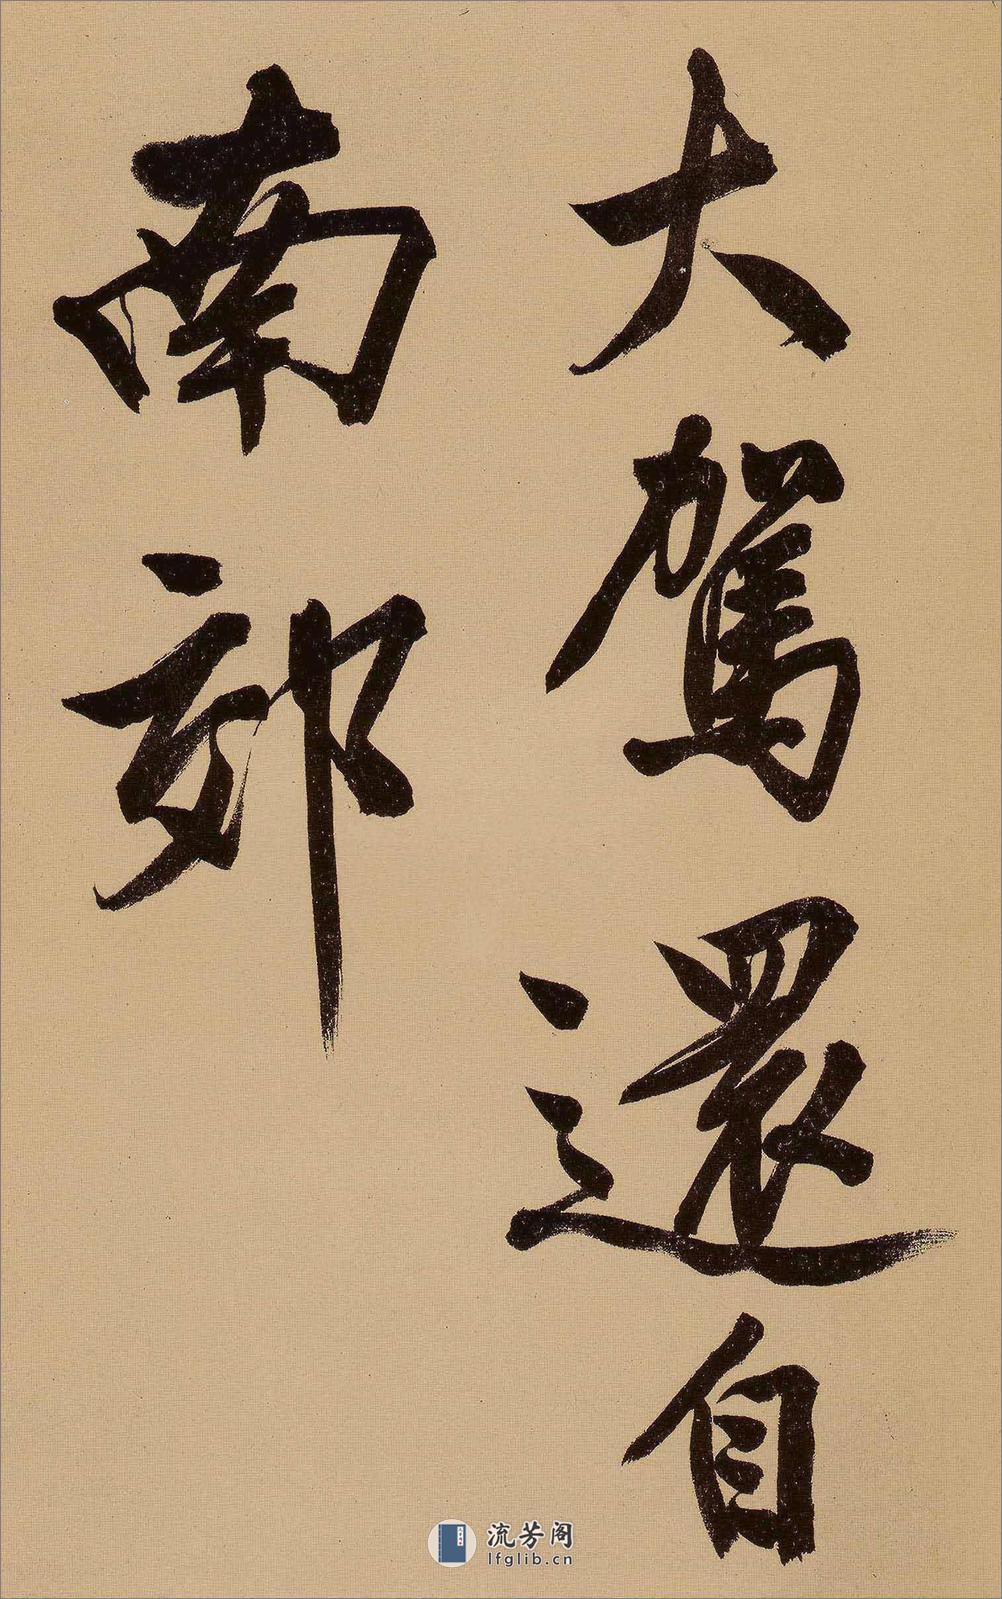 大駕還自
南郊
流芳阁
lfglib.cn